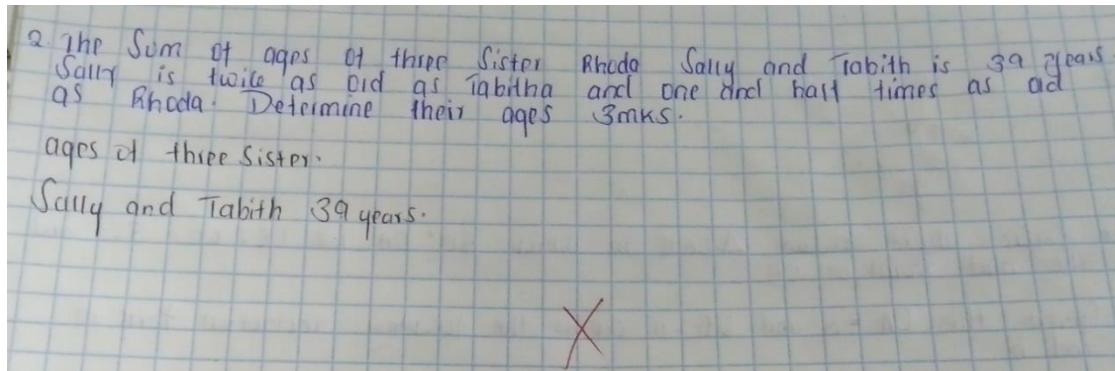 2. The Sum of ages of three Sister Rhoda Sally and Tabith is 39 years
Sally is twice as old as Tabitha and one and half times as old
as Rhoda. Determine their ages 3mks.
ages of three Sister.
Sally and Tabith 39 years.